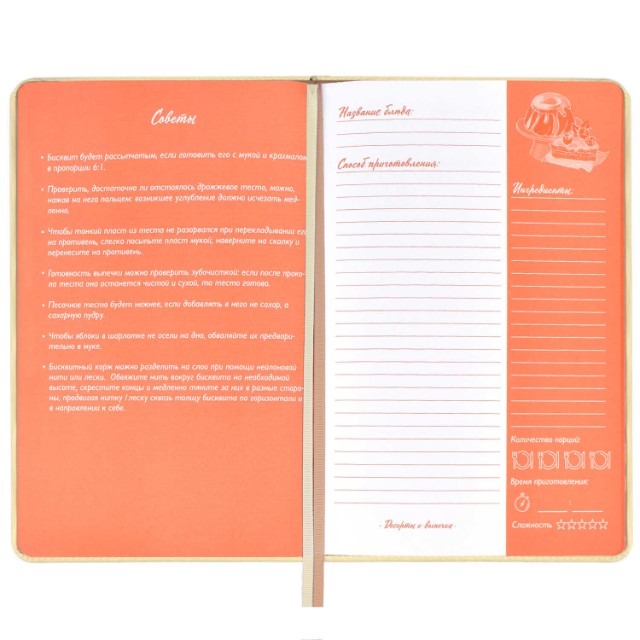 Советы
• Бисквит будет рассыпчатым, если готовить его с мукой и крахмалом
в пропорции 6:1.
• Проверить, достаточно ли отстоялось дрожжевое тесто, можно,
нажав на него пальцем: возникшее углубление должно исчезать мед-
ленно.
• Чтобы тонкий пласт из теста не разорвался при перекладывании его
на противень, слегка посыпьте пласт мукой, наверните на скалку и
перенесите на противень.
• Готовность выпечки можно проверить зубочисткой: если после проко-
ла теста она останется чистой и сухой, то тесто готово.
• Песочное тесто будет нежнее, если добавлять в него не сахар, а
сахарную пудру.
• Чтобы яблоки в шарлотке не осели на дно, обваляйте их предвари-
тельно в муке.
• Бисквитный корж можно разделить на слои при помощи нейлоновой
нити или лески. Обвяжите нить вокруг бисквита на необходимой
высоте, скрестите концы и медленно тяните за них в разные сторо-
ны, продвигая нитку / леску сквозь толщу бисквита по горизонтали и
в направлении к себе.
Название блюда:
Способ приготовления:
· Десерты и выпечка ·
Ингредиенты:
Количество порций:
Время приготовления:
:
Сложность